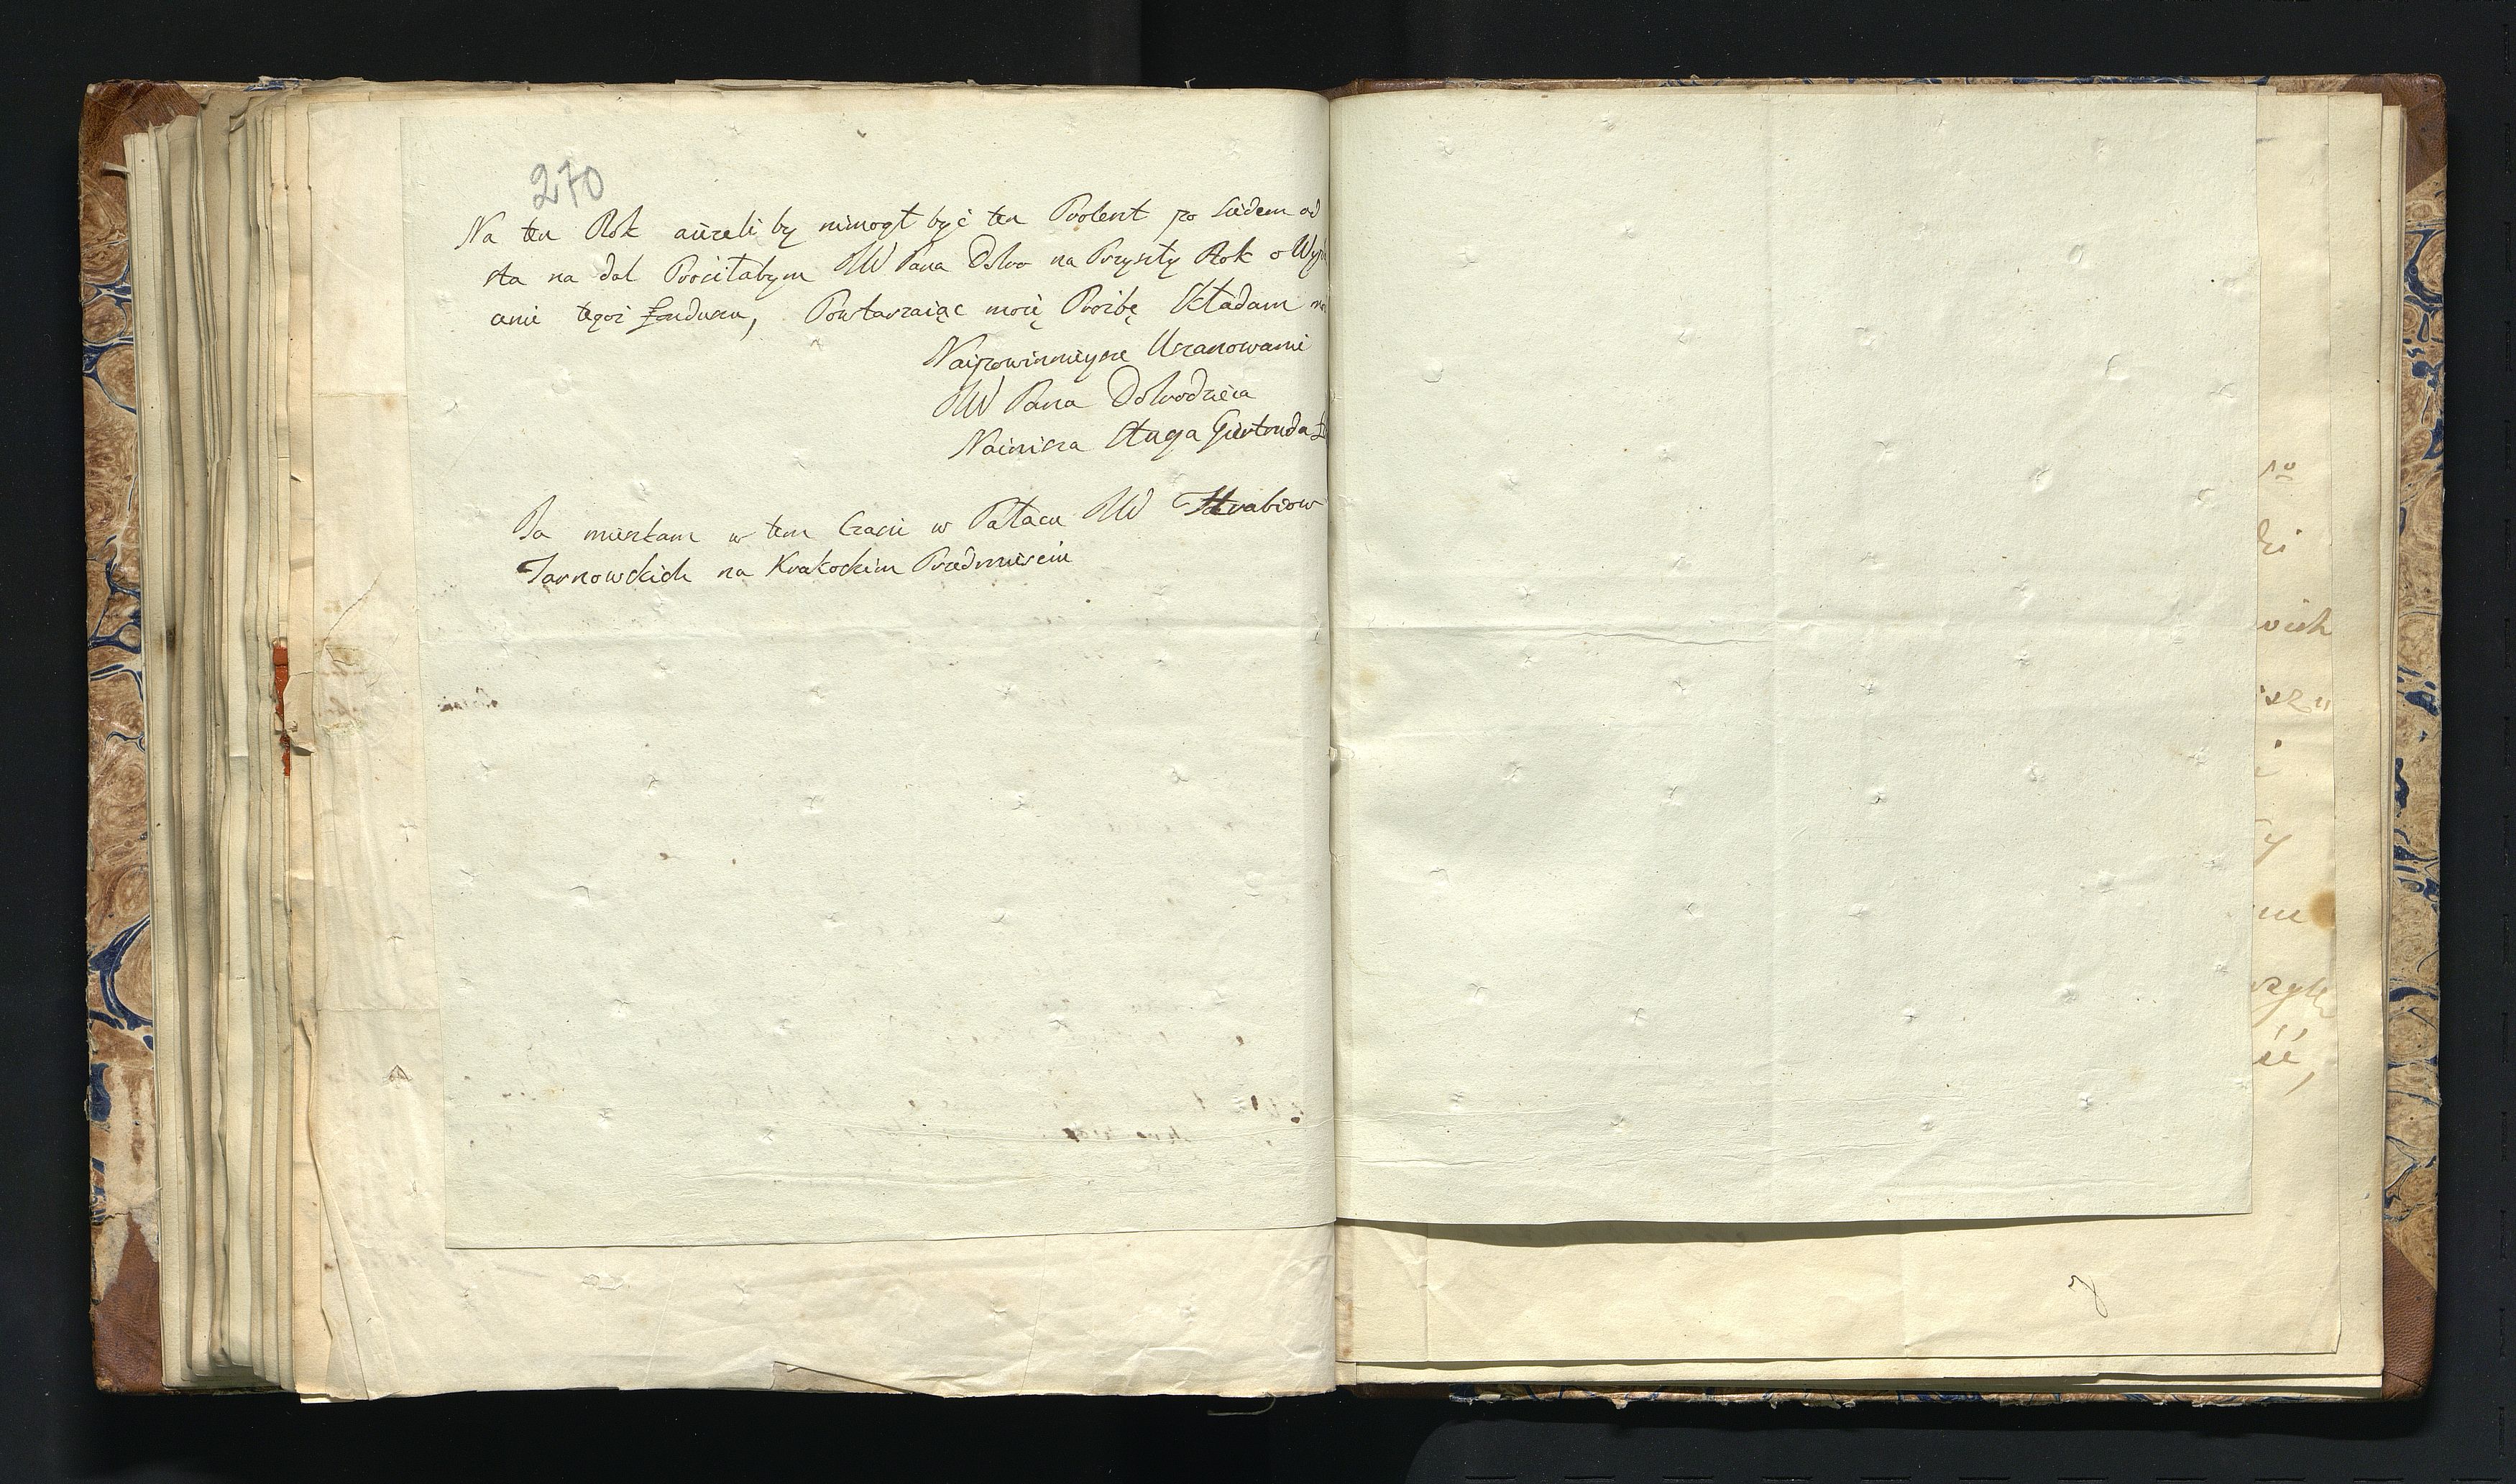 270
Na ten Rok aiżeli by nimogł być ten Procent po Siedem od
sta na dal Prosiłabym JW Pana Dobro na Przyszły Rok o
anie tegoż funduszu, Powtarzaiąc moię Proźbę Składam
Naipowinnieysze Uszanowanie
JW Pana Dobrodzieia
Nainisza Sługa Giertruda
Ja mieszkam w tem Czasie w Pałacu JW Hrabiow
Tarnowskich na Krakoskim Przedmieściu